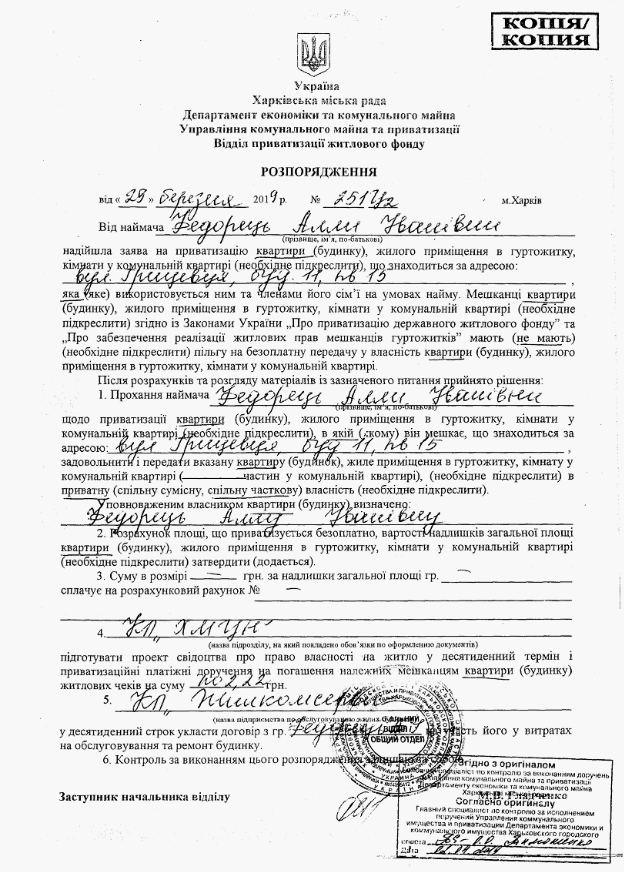 КОПІЯ/
КОПИЯ
Україна
Харківська міська рада
Департамент економіки та комунального майна
Управління комунального майна та приватизації
Відділ приватизації житлового фонду
РОЗПОРЯДЖЕННЯ
від « 29 » березня 2019 р. № м.Харків
Від наймача Федорець Алли Іванівни
(прізвище, ім'я, по-батькові)
надійшла заява на приватизацію квартири (будинку), жилого приміщення в гуртожитку,
кімнати у комунальній квартирі (необхідне підкреслити), що знаходиться за адресою:
вул. Грицевця, буд. 11, кв 15 ,
яка (яке) використовується ним та членами його сім'ї на умовах найму. Мешканці квартири
(будинку), жилого приміщення в гуртожитку, кімнати у комунальній квартирі (необхідне
підкреслити) згідно із Законами України „Про приватизацію державного житлового фонду" та
„Про забезпечення реалізації житлових прав мешканців гуртожитків" мають (не мають)
(необхідне підкреслити) пільгу на безоплатну передачу у власність квартири (будинку), жилого
приміщення в гуртожитку, кімнати у комунальній квартирі.
Після розрахунків та розгляду матеріалів із зазначеного питання прийнято рішення:
1. Прохання наймача Федорець Алли Іванівни
(прізвище, ім'я, по-батькові)
щодо приватизації квартири (будинку), жилого приміщення в гуртожитку, кімнати у
комунальній квартирі (необхідне підкреслити), в якій (якому) він мешкає, що знаходиться за
адресою: вул Грицевця, буд 11, кв 15 ,
задовольнити і передати вказану квартиру (будинок), жиле приміщення в гуртожитку, кімнату у
комунальній квартирі ( частин у комунальній квартирі), (необхідне підкреслити) в
приватну (спільну сумісну, спільну часткову) власність (необхідне підкреслити).
Уповноваженим власником квартири (будинку) визначено:
Федорець Аллу Іванівну
2. Розрахунок площі, що приватизується безоплатно, вартості надлишків загальної площі
квартири (будинку), жилого приміщення в гуртожитку, кімнати у комунальній квартирі
(необхідне підкреслити) затвердити (додається).
3. Суму в розмірі — грн. за надлишки загальної площі гр. —
сплачує на розрахунковий рахунок № —
4. КП „ХМЦН"
(назва підрозділу, на який покладено обов'язки по оформленню документів)
підготувати проект свідоцтва про право власності на житло у десятиденний термін і
приватизаційні платіжні доручення на погашення належних мешканцям квартири (будинку)
житлових чеків на суму 2,22 грн.
5. КП „Жилкомсервіс"
(назва підприємства по обслуговуванню
у десятиденний строк укласти договір з гр. участь його у витратах
на обслуговування та ремонт будинку.
6. Контроль за виконанням цього розпорядження
Заступник начальника відділу
ОБЩИЙ ОТДЕЛ
УКРАИНА
Згідно з оригіналом
Головний спеціаліст по контролю за виконанням доручень
Управління комунального майна та приватизації
Департаменту економіки та комунального майна
Согласно оригиналу
Главный специалист по контролю за исполнением
поручений Управления коммунального
имущества и приватизации Департамента экономики и
коммунального имущества Харьковского городского
Дата